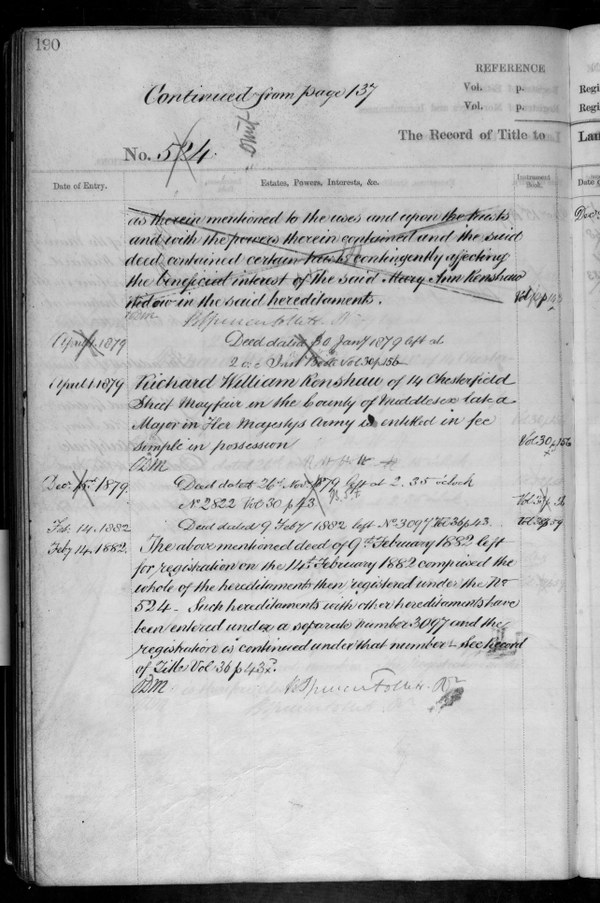 190
REFERENCE
Continued from page 137
Vol. p.
Vol. p.
Omit
The Record of Title to
No. 524.
Date of Entry.
Estates, Powers, Interests, &c.
Instrument Book.
as therein mentioned to the uses and upon the trusts
and with the powers therein contained and the said
deed contained certain trusts contingently affecting
the beneficial interest of the said Mary Ann Renshaw
widow in the said hereditaments.
April 1. 1879
Deed dated 30 Jany 1879 left at
2 o.c Inst Book Vol 30 p 156
April 1. 1879
Richard William Renshaw of 14 Chesterfield
Street Mayfair in the County of Middlesex late a
Major in Her Majestys Army is entitled in fee
simple in possession
Vol 30 p 156
Decr 1879.
Deed dated 26th Nov 1879 left at 2.35 o'clock
No 2822 Vol 30 p 43
Feb. 14. 1882
Deed dated 9 Feby 1882 left No 3097 Vol 36 p 43.
Feby 14. 1882.
The above mentioned deed of 9th February 1882 left
for registration on the 14th February 1882 comprised the
whole of the hereditaments then registered under the No
524 - Such hereditaments with other hereditaments have
been entered under a separate number 3097 and the
registration is continued under that number - See Record
of Title Vol 36 p 43.
Regi
Regi
Lan
Date o
Dec